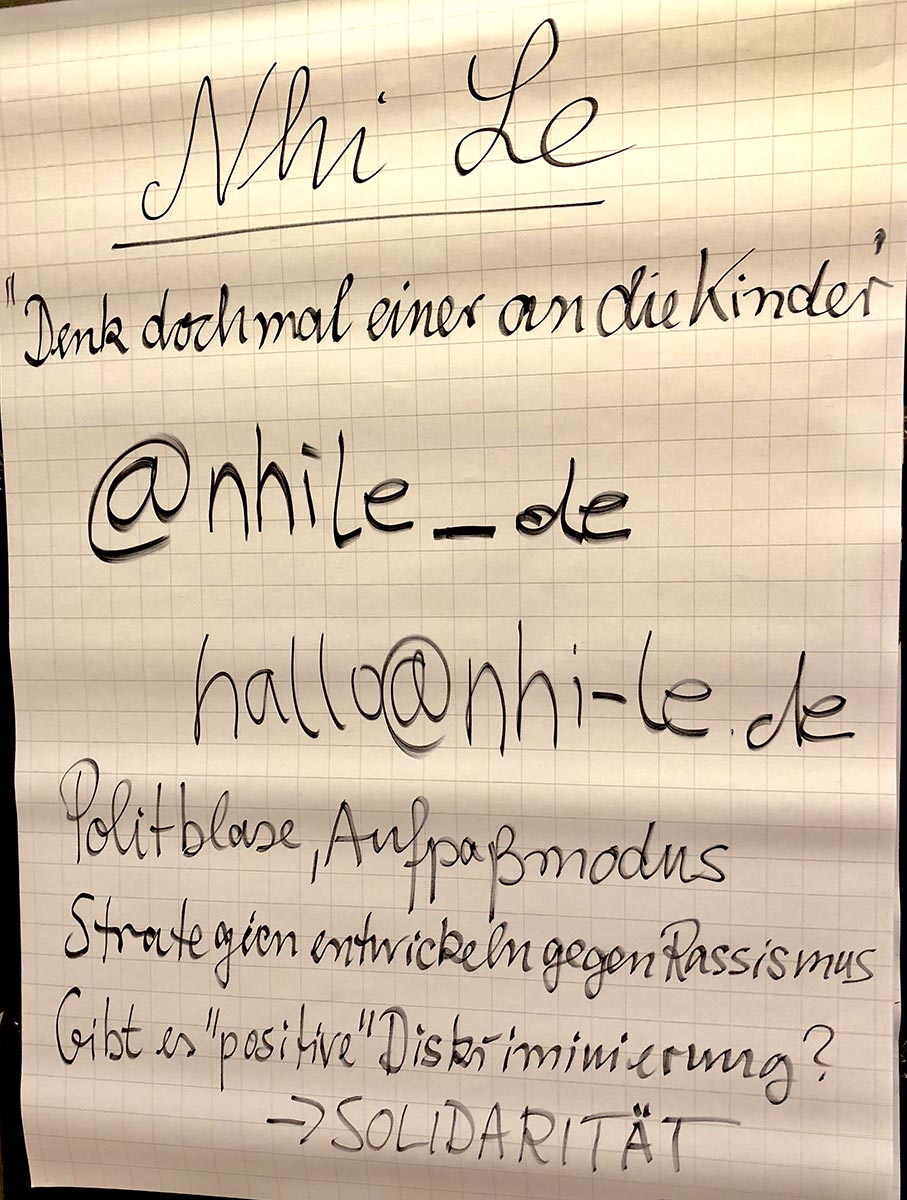 Nhi Le
"Denk doch mal einer an die Kinder"
@nhile_de
hallo@nhi-le.de
Politblase, Aufpaßmodus
Strategien entwickeln gegen Rassismus
Gibt es "positive" Diskriminierung?
-> SOLIDARITÄT